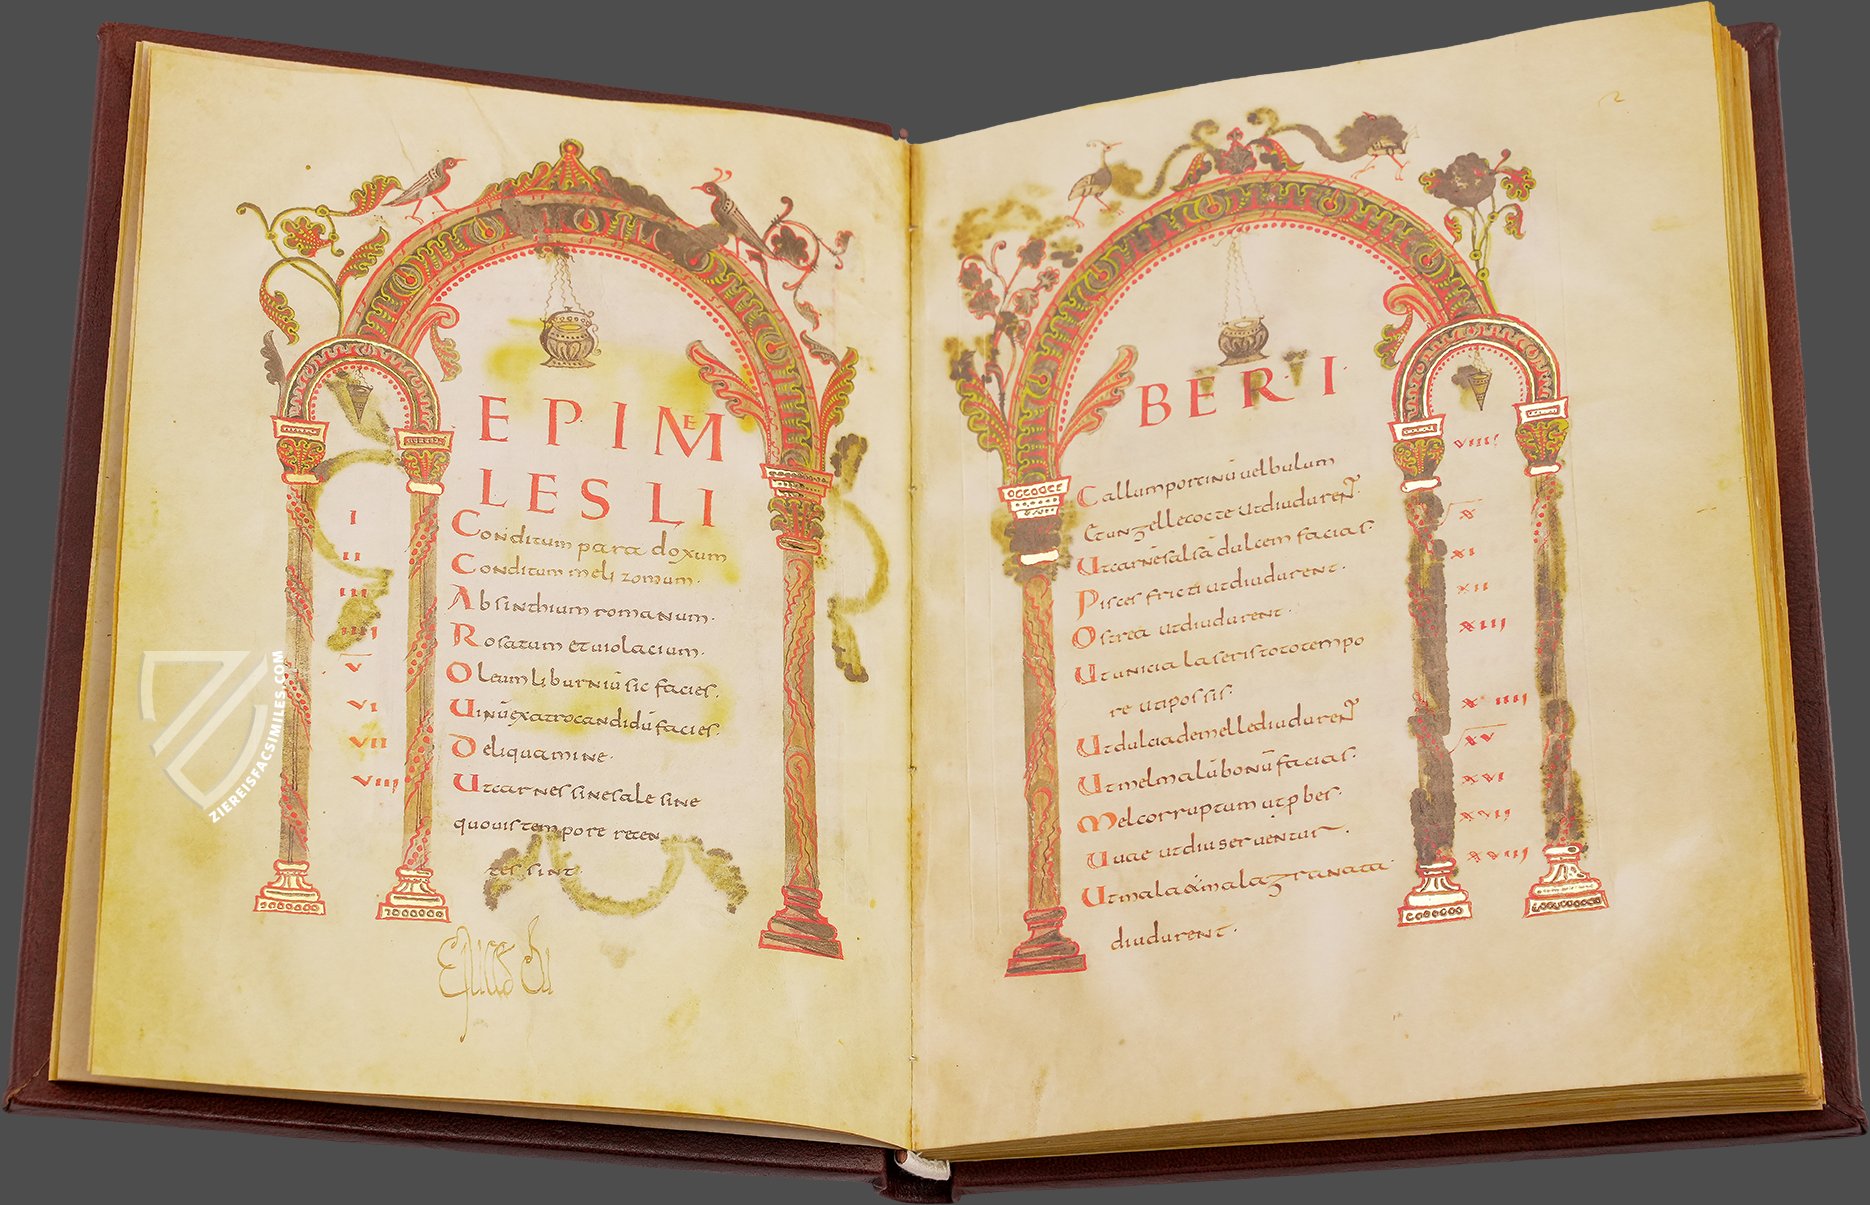 EPIMEM
LESLI
I Conditum paradoxum
II Conditum melizomum.
III Absinthium romanum.
IIII Rosatum et violacium.
V Oleum liburniū sic facies.
VI Uinū ex atro candidū facies.
VII De liquamine.
VIII Ut carnes sine sale sine
quouis tempore recen
tes sint
ZIEREISFACSIMILES.COM
BER·I·
Callum porcinū uel bulum
VIIII
Et ungelle cocte ut diu durent
X Ut carnē salsā dulcem facias.
XI Pisces fricti ut diu durent.
XII Ostrea ut diu durent.
XIII Ut uncia laseris toto tempo
re uti possis:
XIIII Ut dulcia de melle diu durent
XV Ut mel malū bonū facias.
XVI Mel corruptum ut ꝓbes.
XVII Uuae ut diu seruentur.
XVIII Ut mala & mala granata
diu durent.